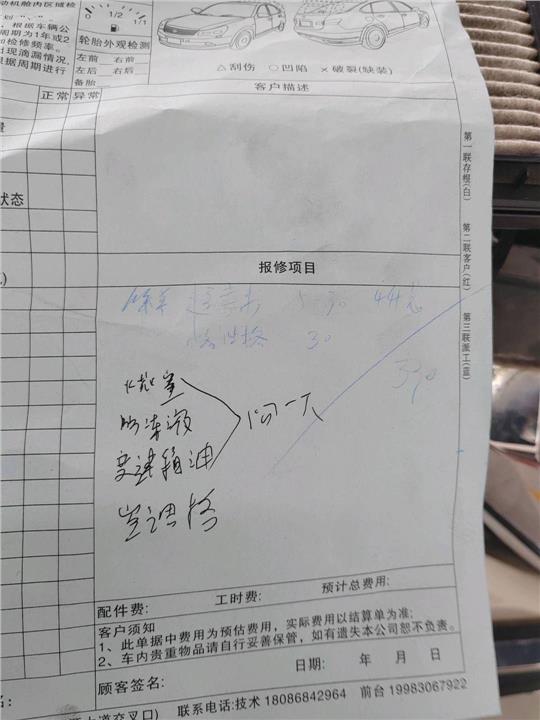 动机舱内区域检
根据车辆公
周期为1年或2
和检修频率。
出现滴漏情况,
根据周期进行
0 1/2 1/1
轮胎外观检测
左前 右前
左后 右后
备胎
△刮伤 ○凹陷 ×破裂(缺装)
正常 异常
客户描述
量
状态
第一联存根(白)
第二联客户(红)
第三联派工(蓝)
报修项目
5-30 44元
30
火花塞
防冻液
变速箱油
空调格
配件费: 工时费: 预计总费用:
客户须知
1、此单据中费用为预估费用,实际费用以结算单为准;
2、车内贵重物品请自行妥善保管,如有遗失本公司恕不负责。
日期: 年 月 日
顾客签名:
名:
大道交叉口) 联系电话:技术 18086842964 前台 19983067922